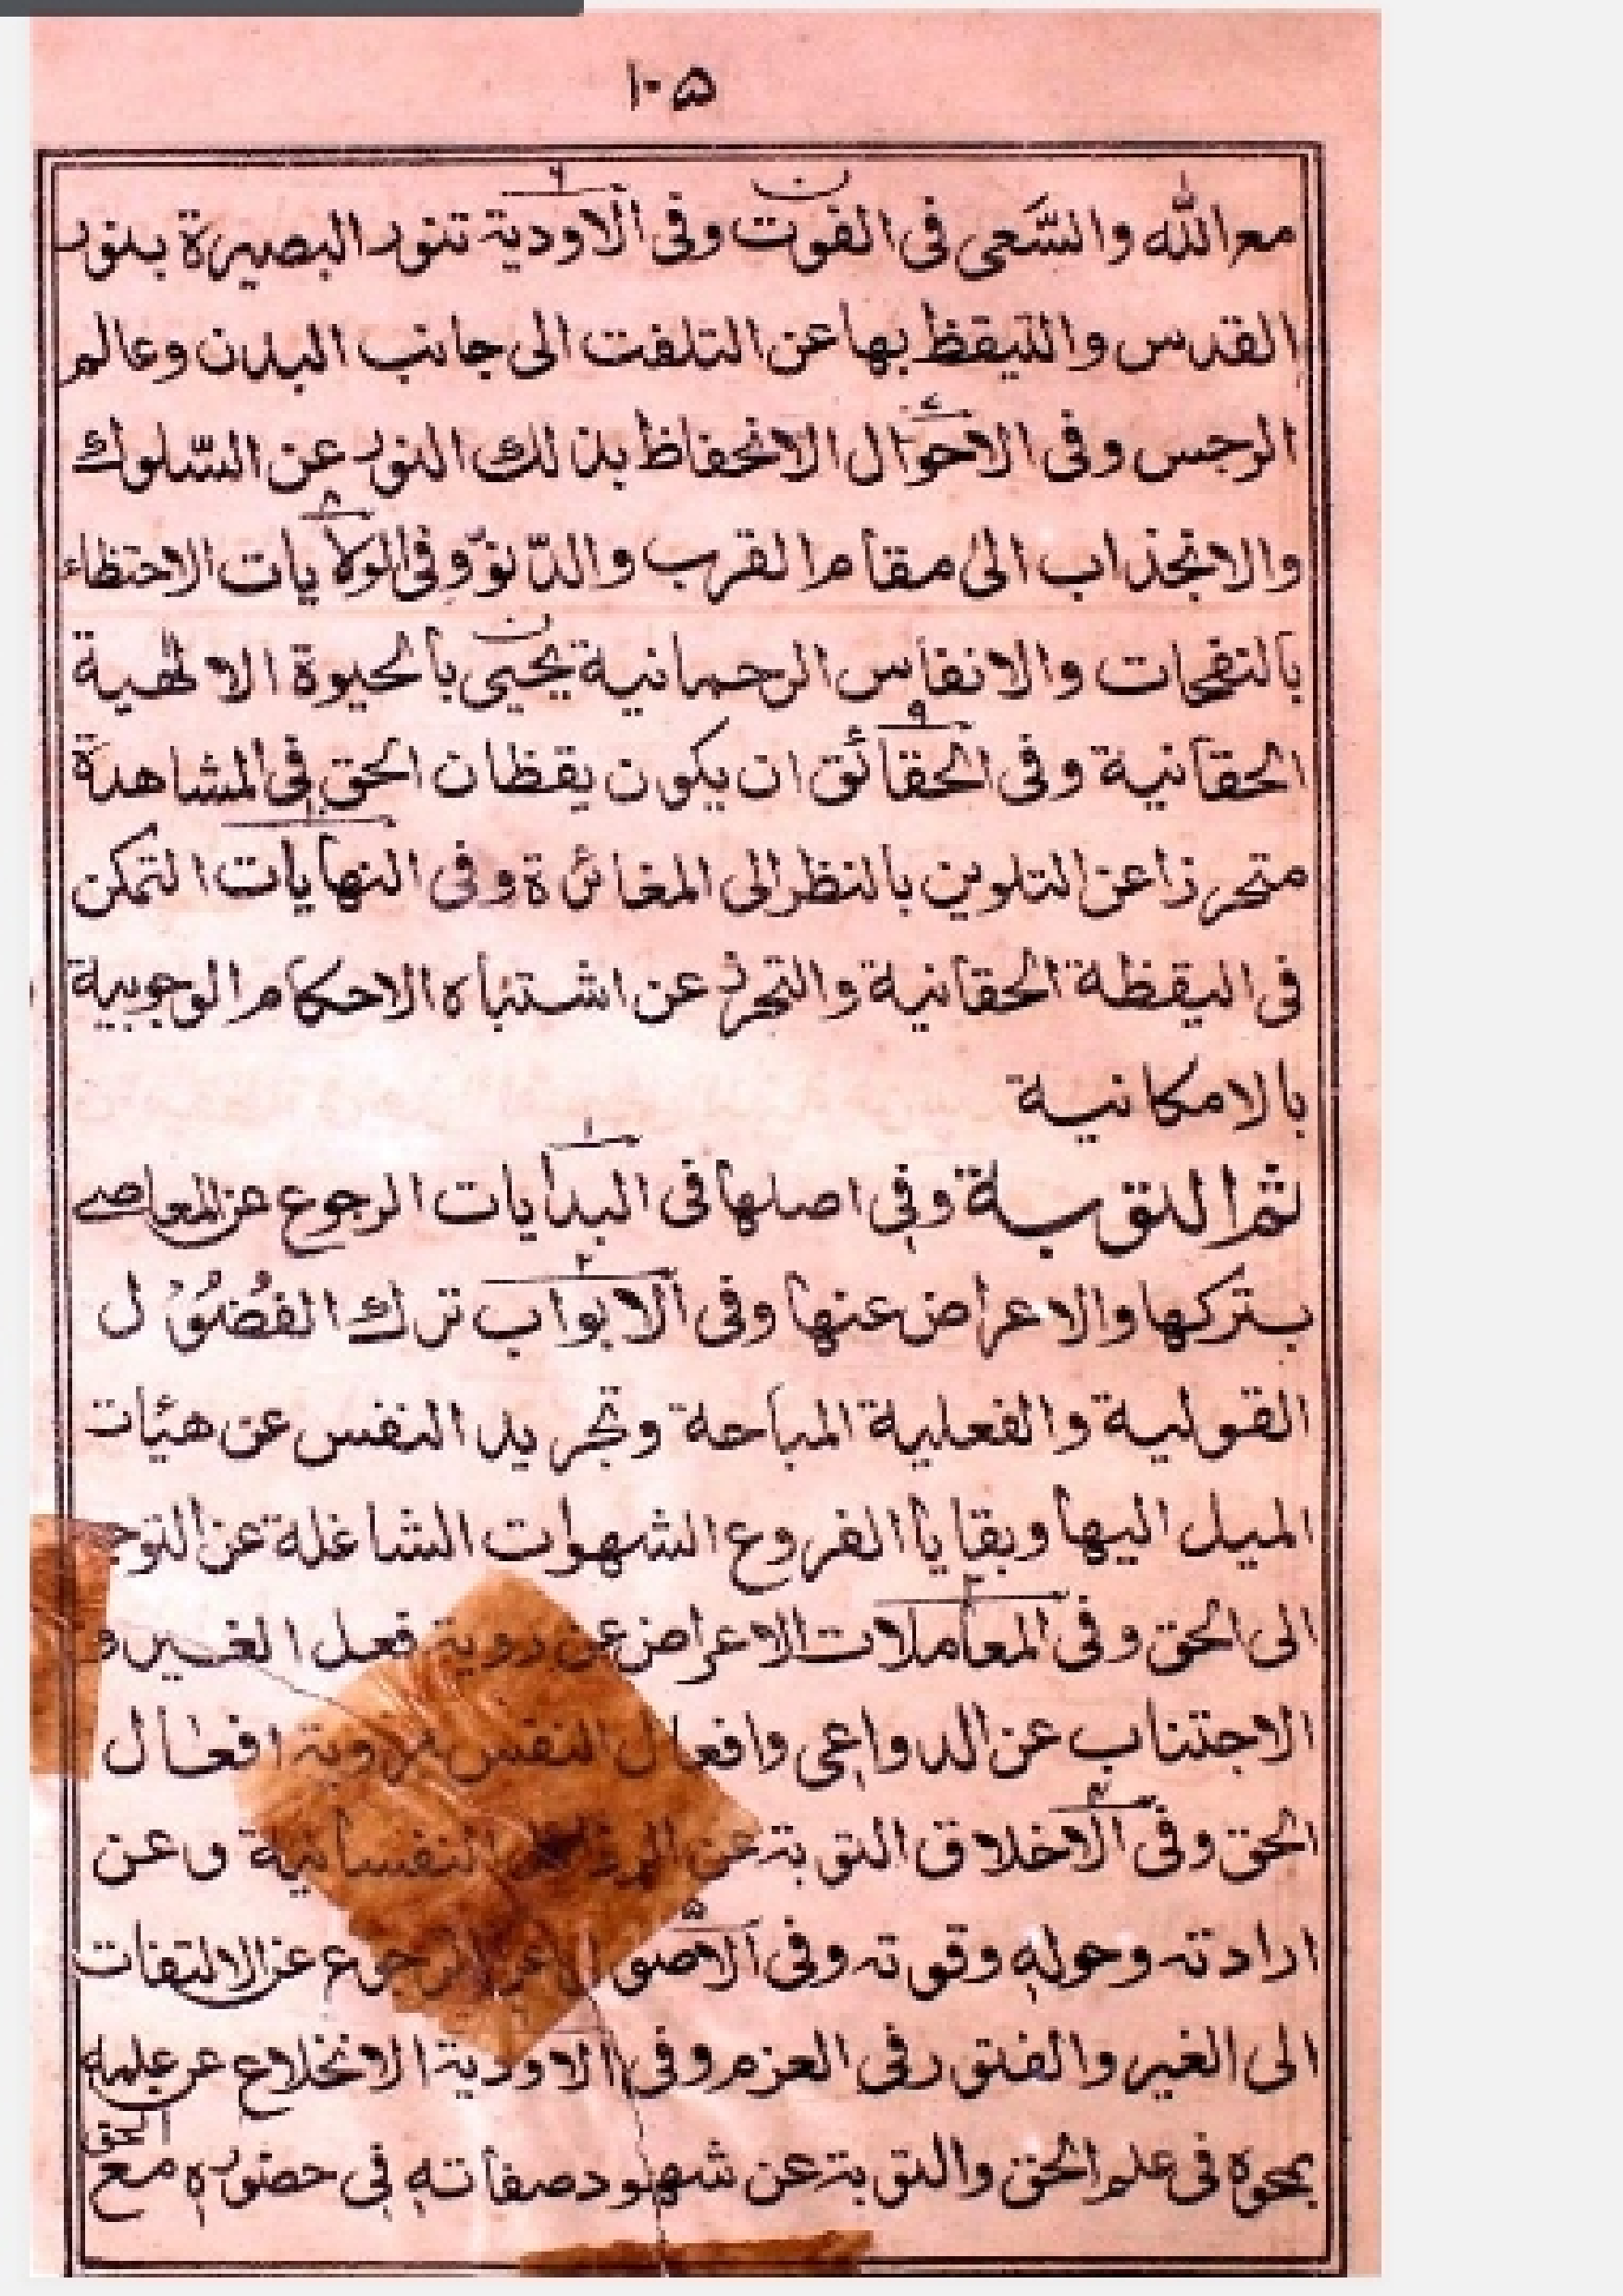 ١٠۵
مع الله والسَّعى فى الفوت وفى الاودية تنور البصيرة بنور
القدس والتيقظ بها عن التلفت الى جانب البدن وعالم
الرجس وفى الاحوال الانحفاظ بذلك النور عن السّلوك
والانجذاب الى مقام القرب والدّنوّ وفى الولايات الاحتظاء
بالنفحات والانفاس الرحمانية يحيى بالحيوة الالهية
الحقانية وفى الحقائق ان يكون يقظان الحق فى المشاهدة
متحرزا عن التلوين بالنظر الى المغائرة وفى النهايات التمكن
فى اليقظة الحقانية والتحرز عن اشتباه الاحكام الوجوبية
بالامكانية
ثم التوبة وفى اصلها فى البدايات الرجوع عن المعاصى
بتركها والاعراض عنها وفى الابواب ترك الفُضُوْل
القولية والفعلية المباحة وتجريد النفس عن هيئات
الميل اليها وبقايا الفروع الشهوات الشاغلة عن
الى الحق وفى المعاملات الاعراض عن روية فعل الغير و
الاجتناب عن الدواعى وافعال النفس بروية افعال
الحق وفى الاخلاق التوبة عن النفسانية وعن
ارادته وحوله وقوته وفى الاصول الرجوع عن الالتفات
الى الغير والفتور فى العزم وفى الاودية الانخلاع عن علمه
بمحوه فى علم الحق والتوبة عن شهود صفاته فى حضوره مع
الحق